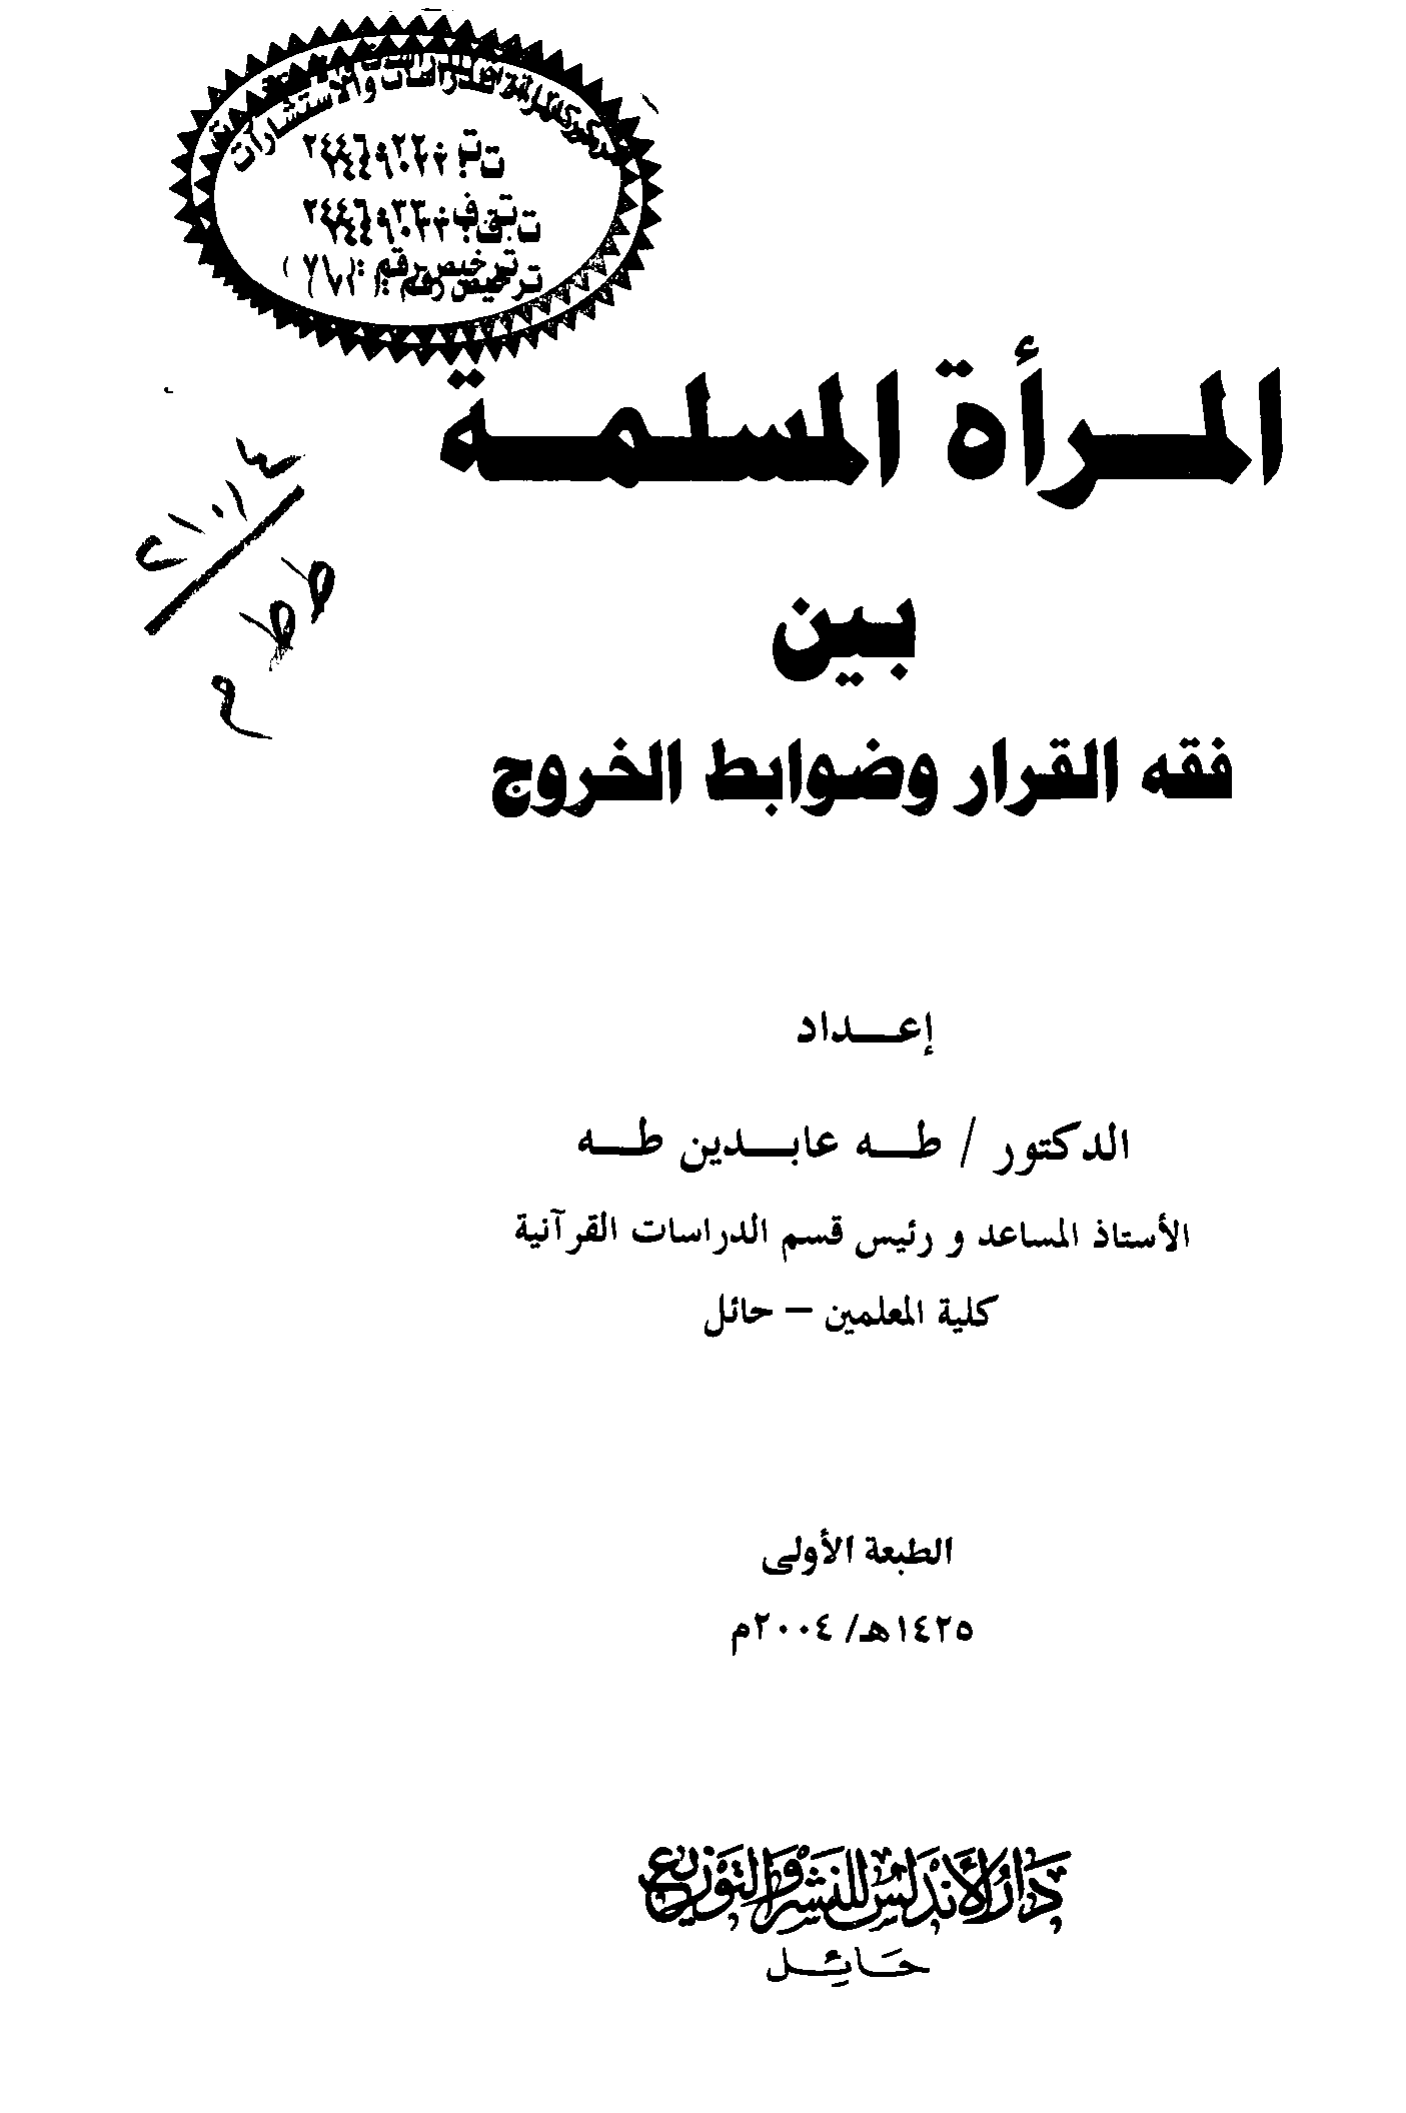 والاستشارات
ترخيص رقم : ( ٧١ )
المرأة المسلمة
بين
فقه القرار وضوابط الخروج
إعداد
الدكتور / طه عابدين طه
الأستاذ المساعد و رئيس قسم الدراسات القرآنية
كلية المعلمين – حائل
الطبعة الأولى
١٤٢٥هـ/ ٢٠٠٤م
دَارُ الأَنْدَلُسِ لِلنَّشْرِ وَالتَّوْزِيع
حَائِل